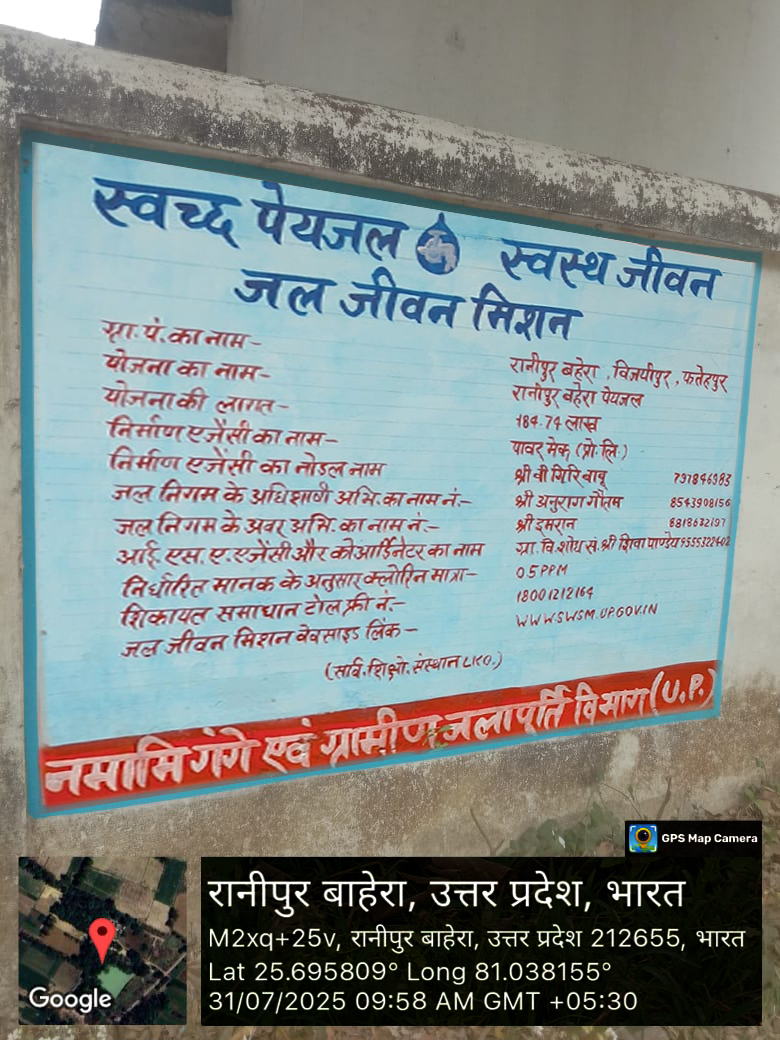 स्वच्छ पेयजल स्वस्थ जीवन
जल जीवन मिशन
ग्रा. पं. का नाम-
योजना का नाम- रानीपुर बहेरा , विजयीपुर , फतेहपुर
योजना की लागत- रानीपुर बहेरा पेयजल
निर्माण एजेंसी का नाम- 184.74 लाख
निर्माण एजेंसी का नोडल नाम पावर मेक (प्रो. लि.)
जल निगम के अधिशाषी अभि. का नाम नं.- श्री वी गिरि बाबू 797846983
जल निगम के अवर अभि. का नाम नं.- श्री अनुराग गौतम 8543908156
आई. एस. ए. एजेंसी और कोआर्डिनेटर का नाम श्री इमरान 8818632197
निर्धारित मानक के अनुसार क्लोरिन मात्रा- ग्रा. वि. शोध सं. श्री शिवा पाण्डेय 9555322402
शिकायत समाधान टोल फ्री नं.- 0.5 PPM
जल जीवन मिशन वेवसाइड लिंक- 18001212164
WWW.SWSM.UP.GOV.IN
(सार्व. शिक्षो. संस्थान LKO.)
नमामि गंगे एवं ग्रामीण जलापूर्ति विभाग (U.P.)
GPS Map Camera
Google
रानीपुर बाहेरा, उत्तर प्रदेश, भारत
M2xq+25v, रानीपुर बाहेरा, उत्तर प्रदेश 212655, भारत
Lat 25.695809° Long 81.038155°
31/07/2025 09:58 AM GMT +05:30